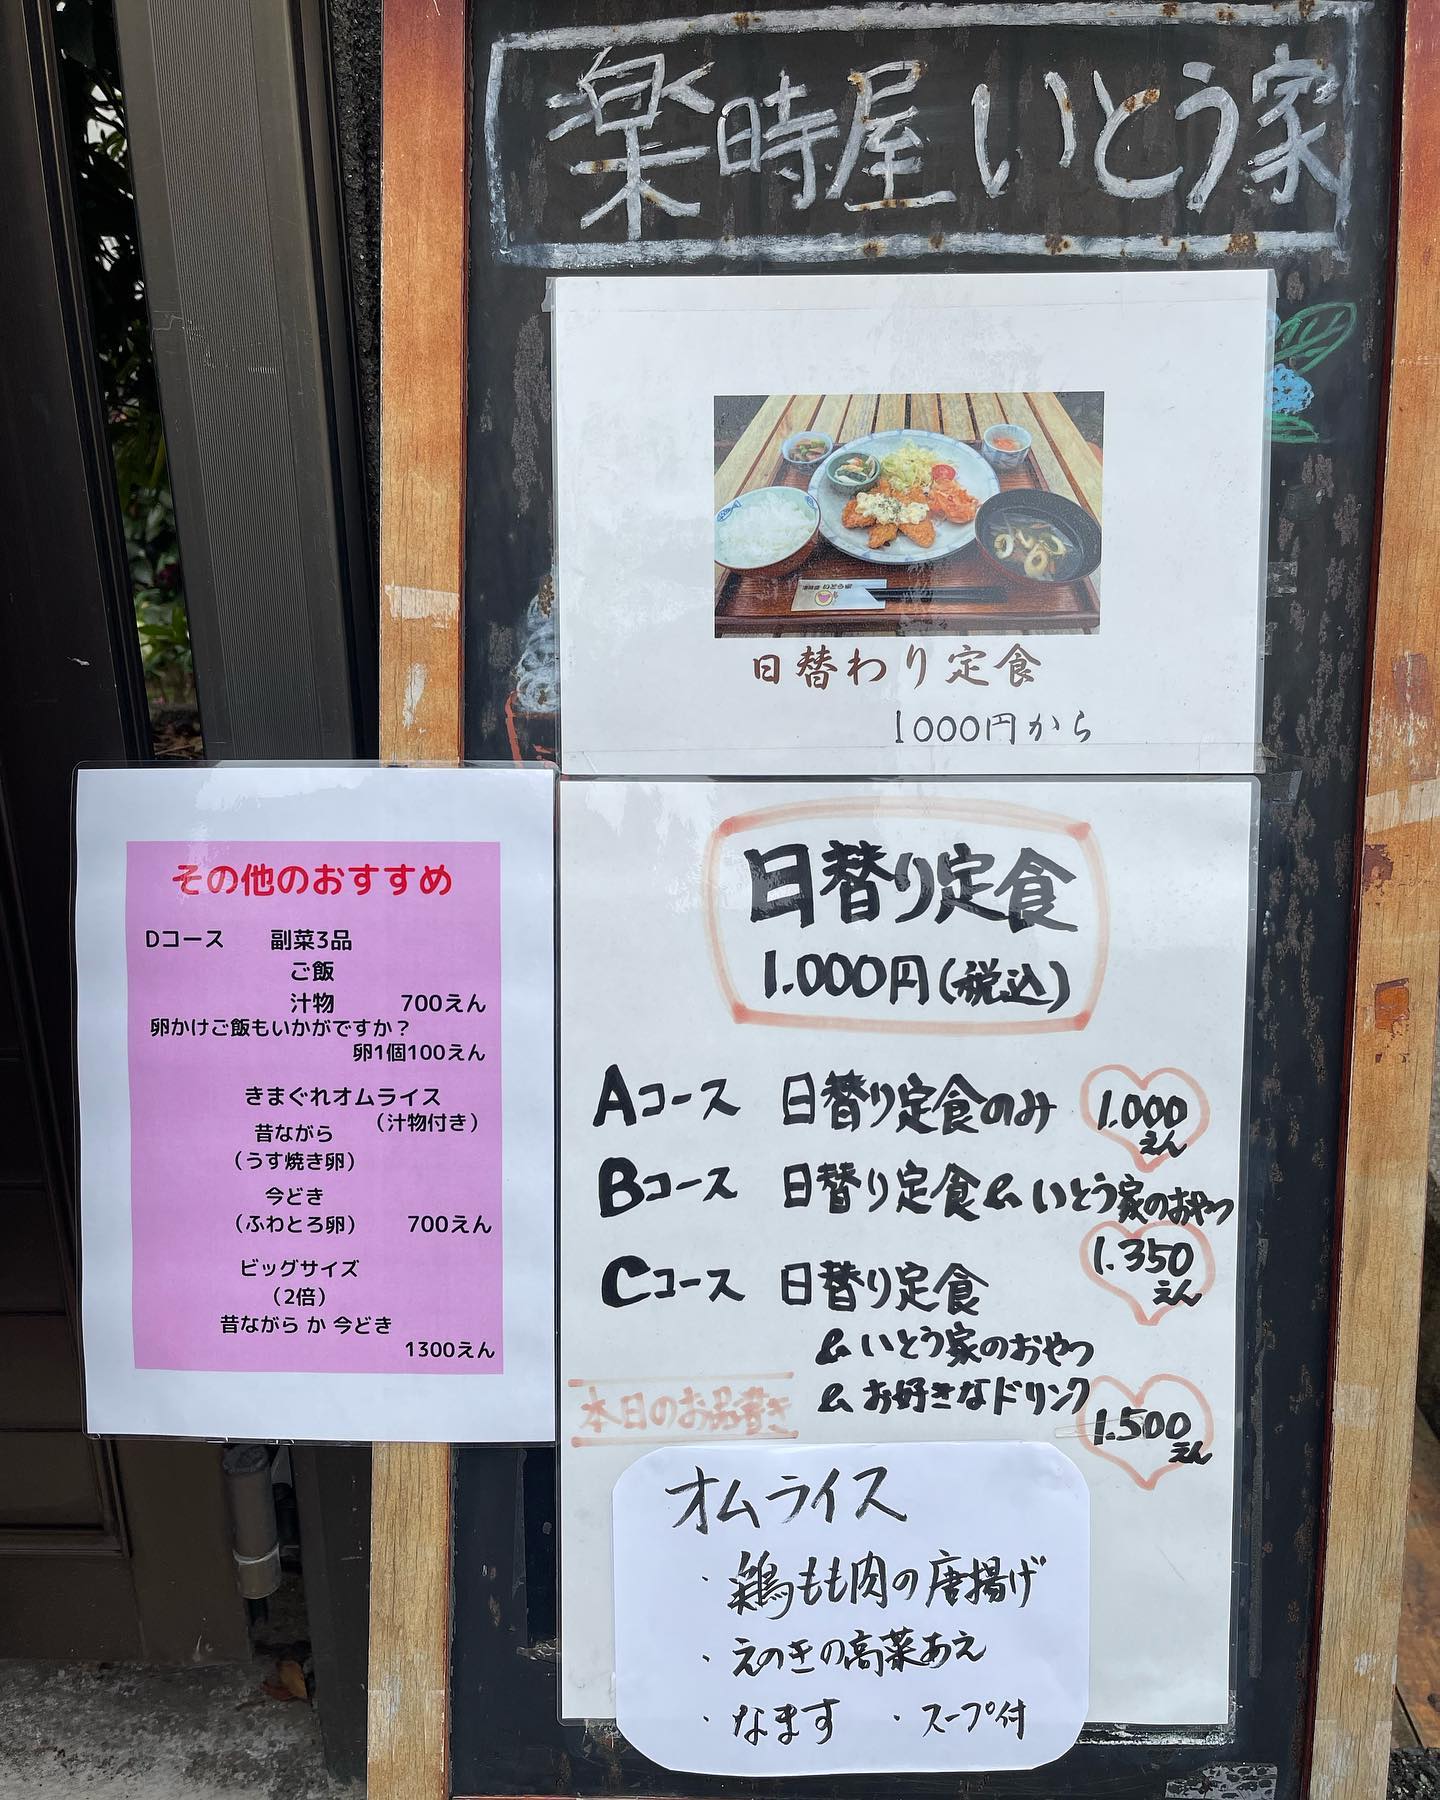 楽時屋いとう家
日替わり定食
1000円から
その他のおすすめ
Dコース 副菜3品
ご飯
汁物 700えん
卵かけご飯もいかがですか？
卵1個100えん
きまぐれオムライス
（汁物付き）
昔ながら
（うす焼き卵）
今どき
（ふわとろ卵） 700えん
ビッグサイズ
（2倍）
昔ながら か 今どき
1300えん
日替り定食
1.000円(税込)
Aコース 日替り定食のみ 1.000
えん
Bコース 日替り定食&いとう家のおやつ
1.350
えん
Cコース 日替り定食
&いとう家のおやつ
&お好きなドリンク
1.500
えん
本日のお品書き
オムライス
・鶏もも肉の唐揚げ
・えのきの高菜あえ
・なます ・スープ付